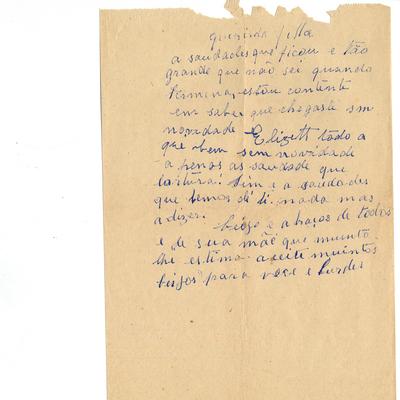 querida filla
a saudades que ficou e tão
grande que não sei quando
termina, estou contente
em saber que chegaste sm
novidade Elizett todo a
que bem sem novidade
a penos as saudade que
tortura! Sim e a saudades
que temos di ti. nada mas
a dizer.
beijo e abraços de todos
e de sua mãe que muinto
lhe estima aceite muintos
beijos para voce e